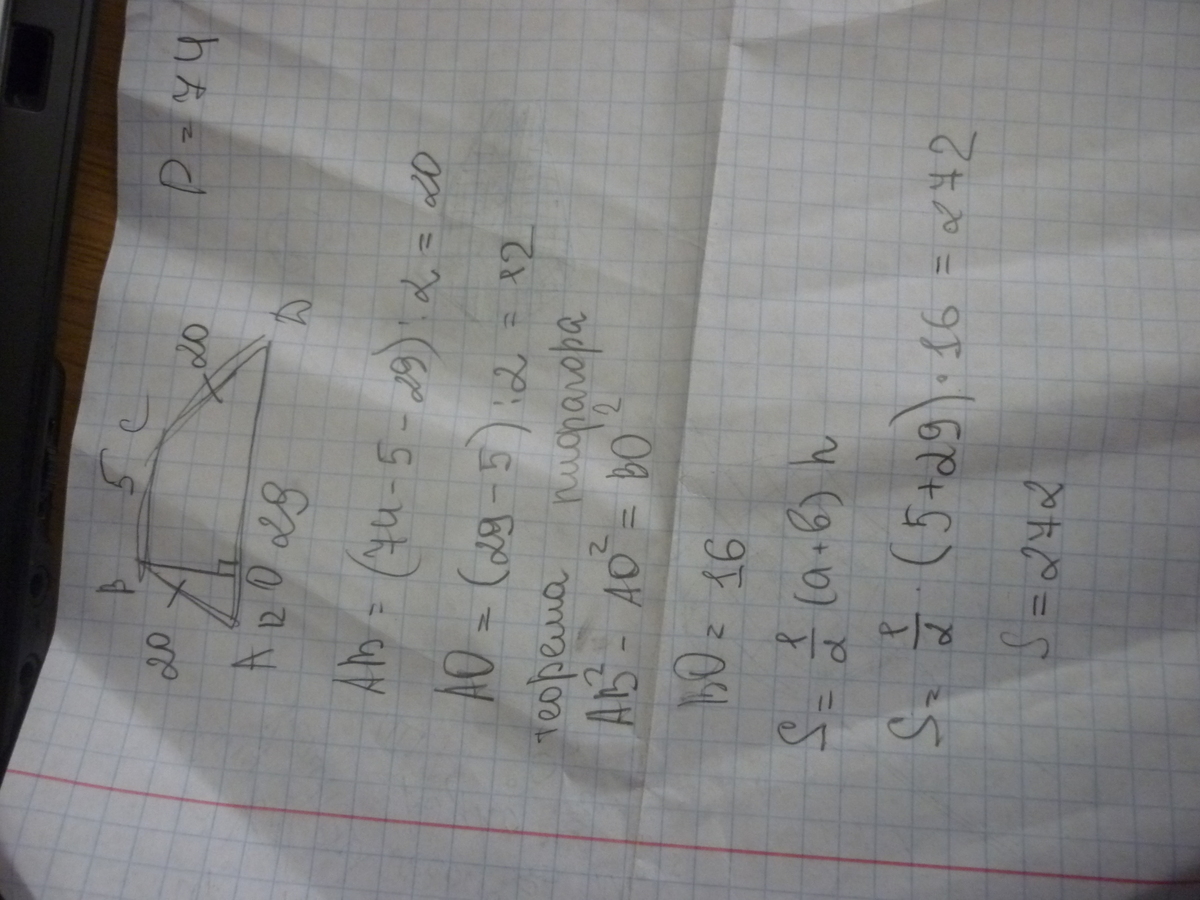 P = 74
B 5 C
20 20
A 12 O 29 D
AB = (74 - 5 - 29) : 2 = 20
AO = (29 - 5) : 2 = 12
теорема пифагора
AB² - AO² = BO²
BO = 16
S = 1/2 (a + b) h
S = 1/2 · (5 + 29) · 16 = 272
S = 272